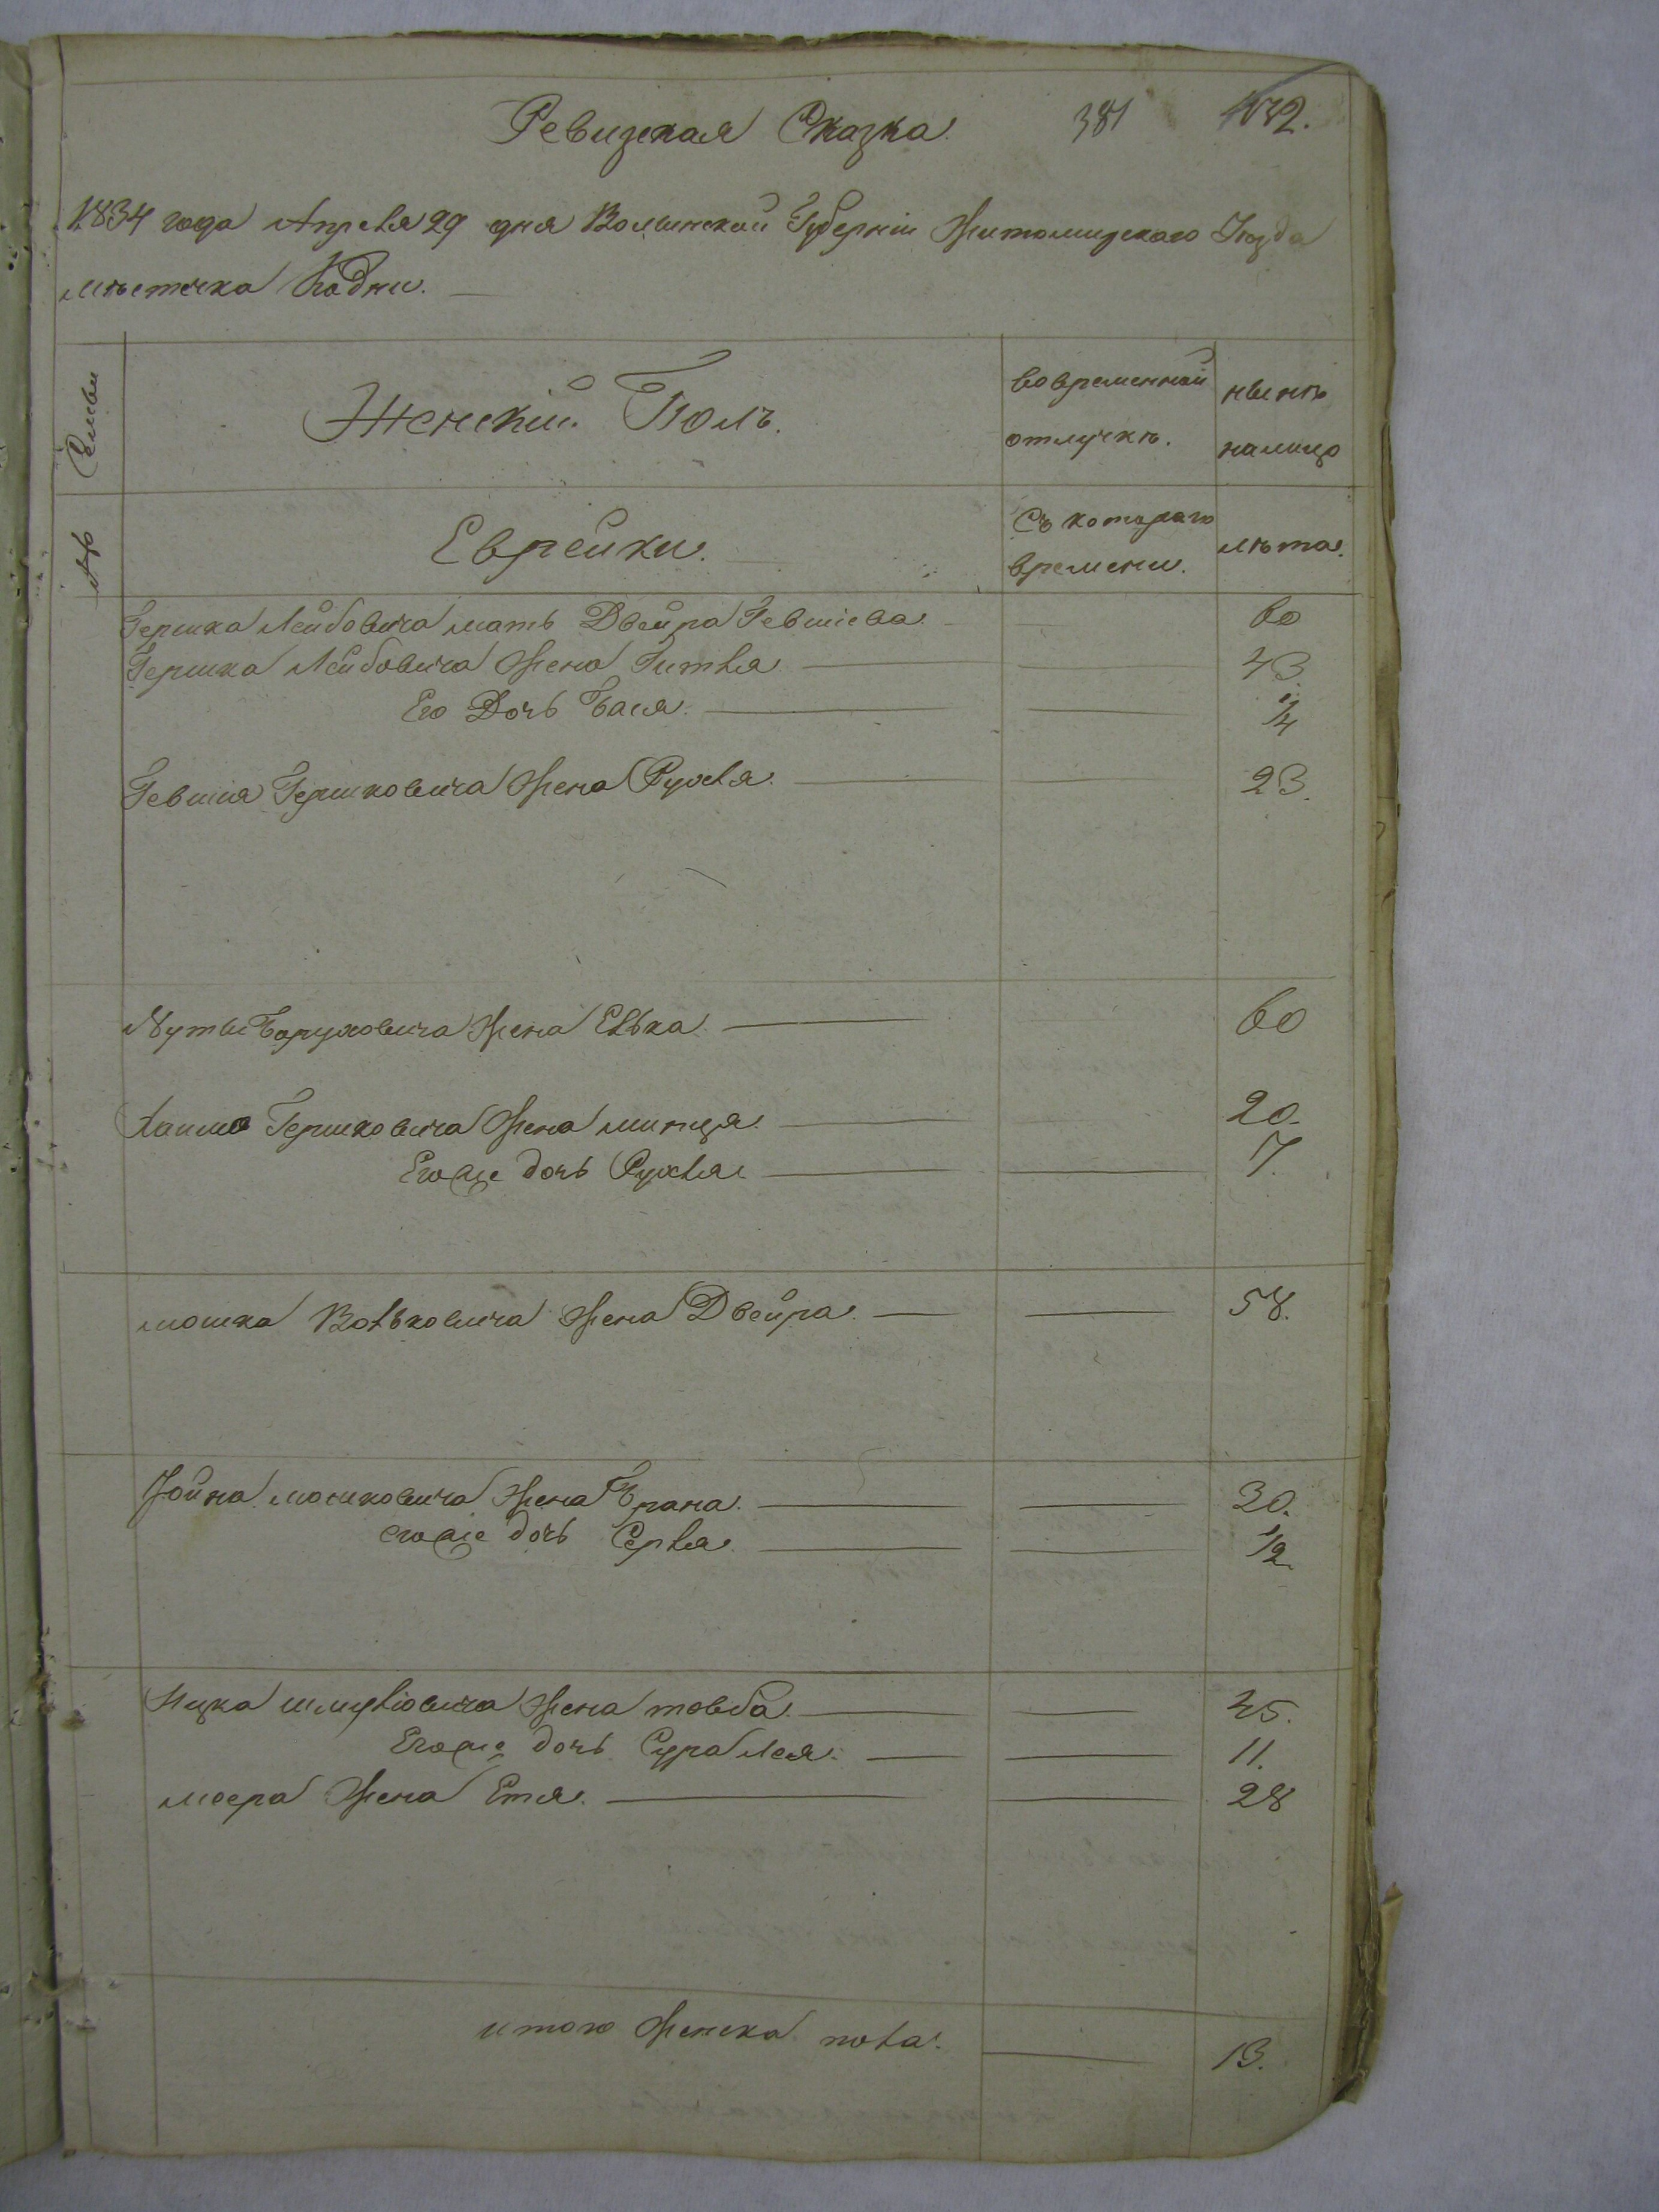 Ревизская Сказка. 381 432.
1834 года Апреля 29 дня Волынской Губерніи Житомирскаго Уезда
мѣстечка Кодни.
Семьи
Женскій Полъ.
во временной отлучкѣ.
нынѣ налицо
№
Еврейки.
Съ котораго времени.
лѣта.
Гершка Лейбовича мать Двейра Гевшіева 60
Гершка Лейбовича жена Гитля 43.
Его Дочь Бася. 1/4
Гевшия Гершковича жена Рухля. 23.
Муты Боруховича жена Елька. 60
Хаима Гершковича жена минця. 20.
Егоже дочь Рухля 7.
мошка Волковича жена Двейра. 58.
Іойна мошковича жена Брана. 30.
егоже дочь Серля. 1/2
Ицка шмулiовича жена товба. 45.
Егоже дочь Сура Лея. 11.
моера жена Етя. 28
итого женска пола. 13.